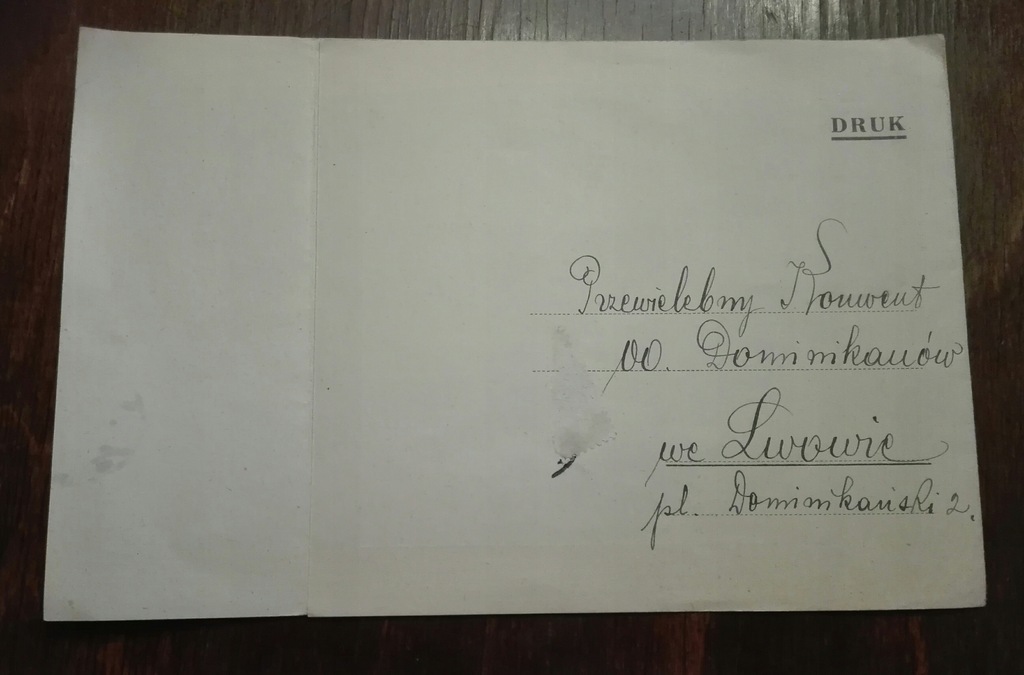 DRUK
Przewielebny Konwent
OO. Dominikanów
we Lwowie
pl. Dominikański 2.